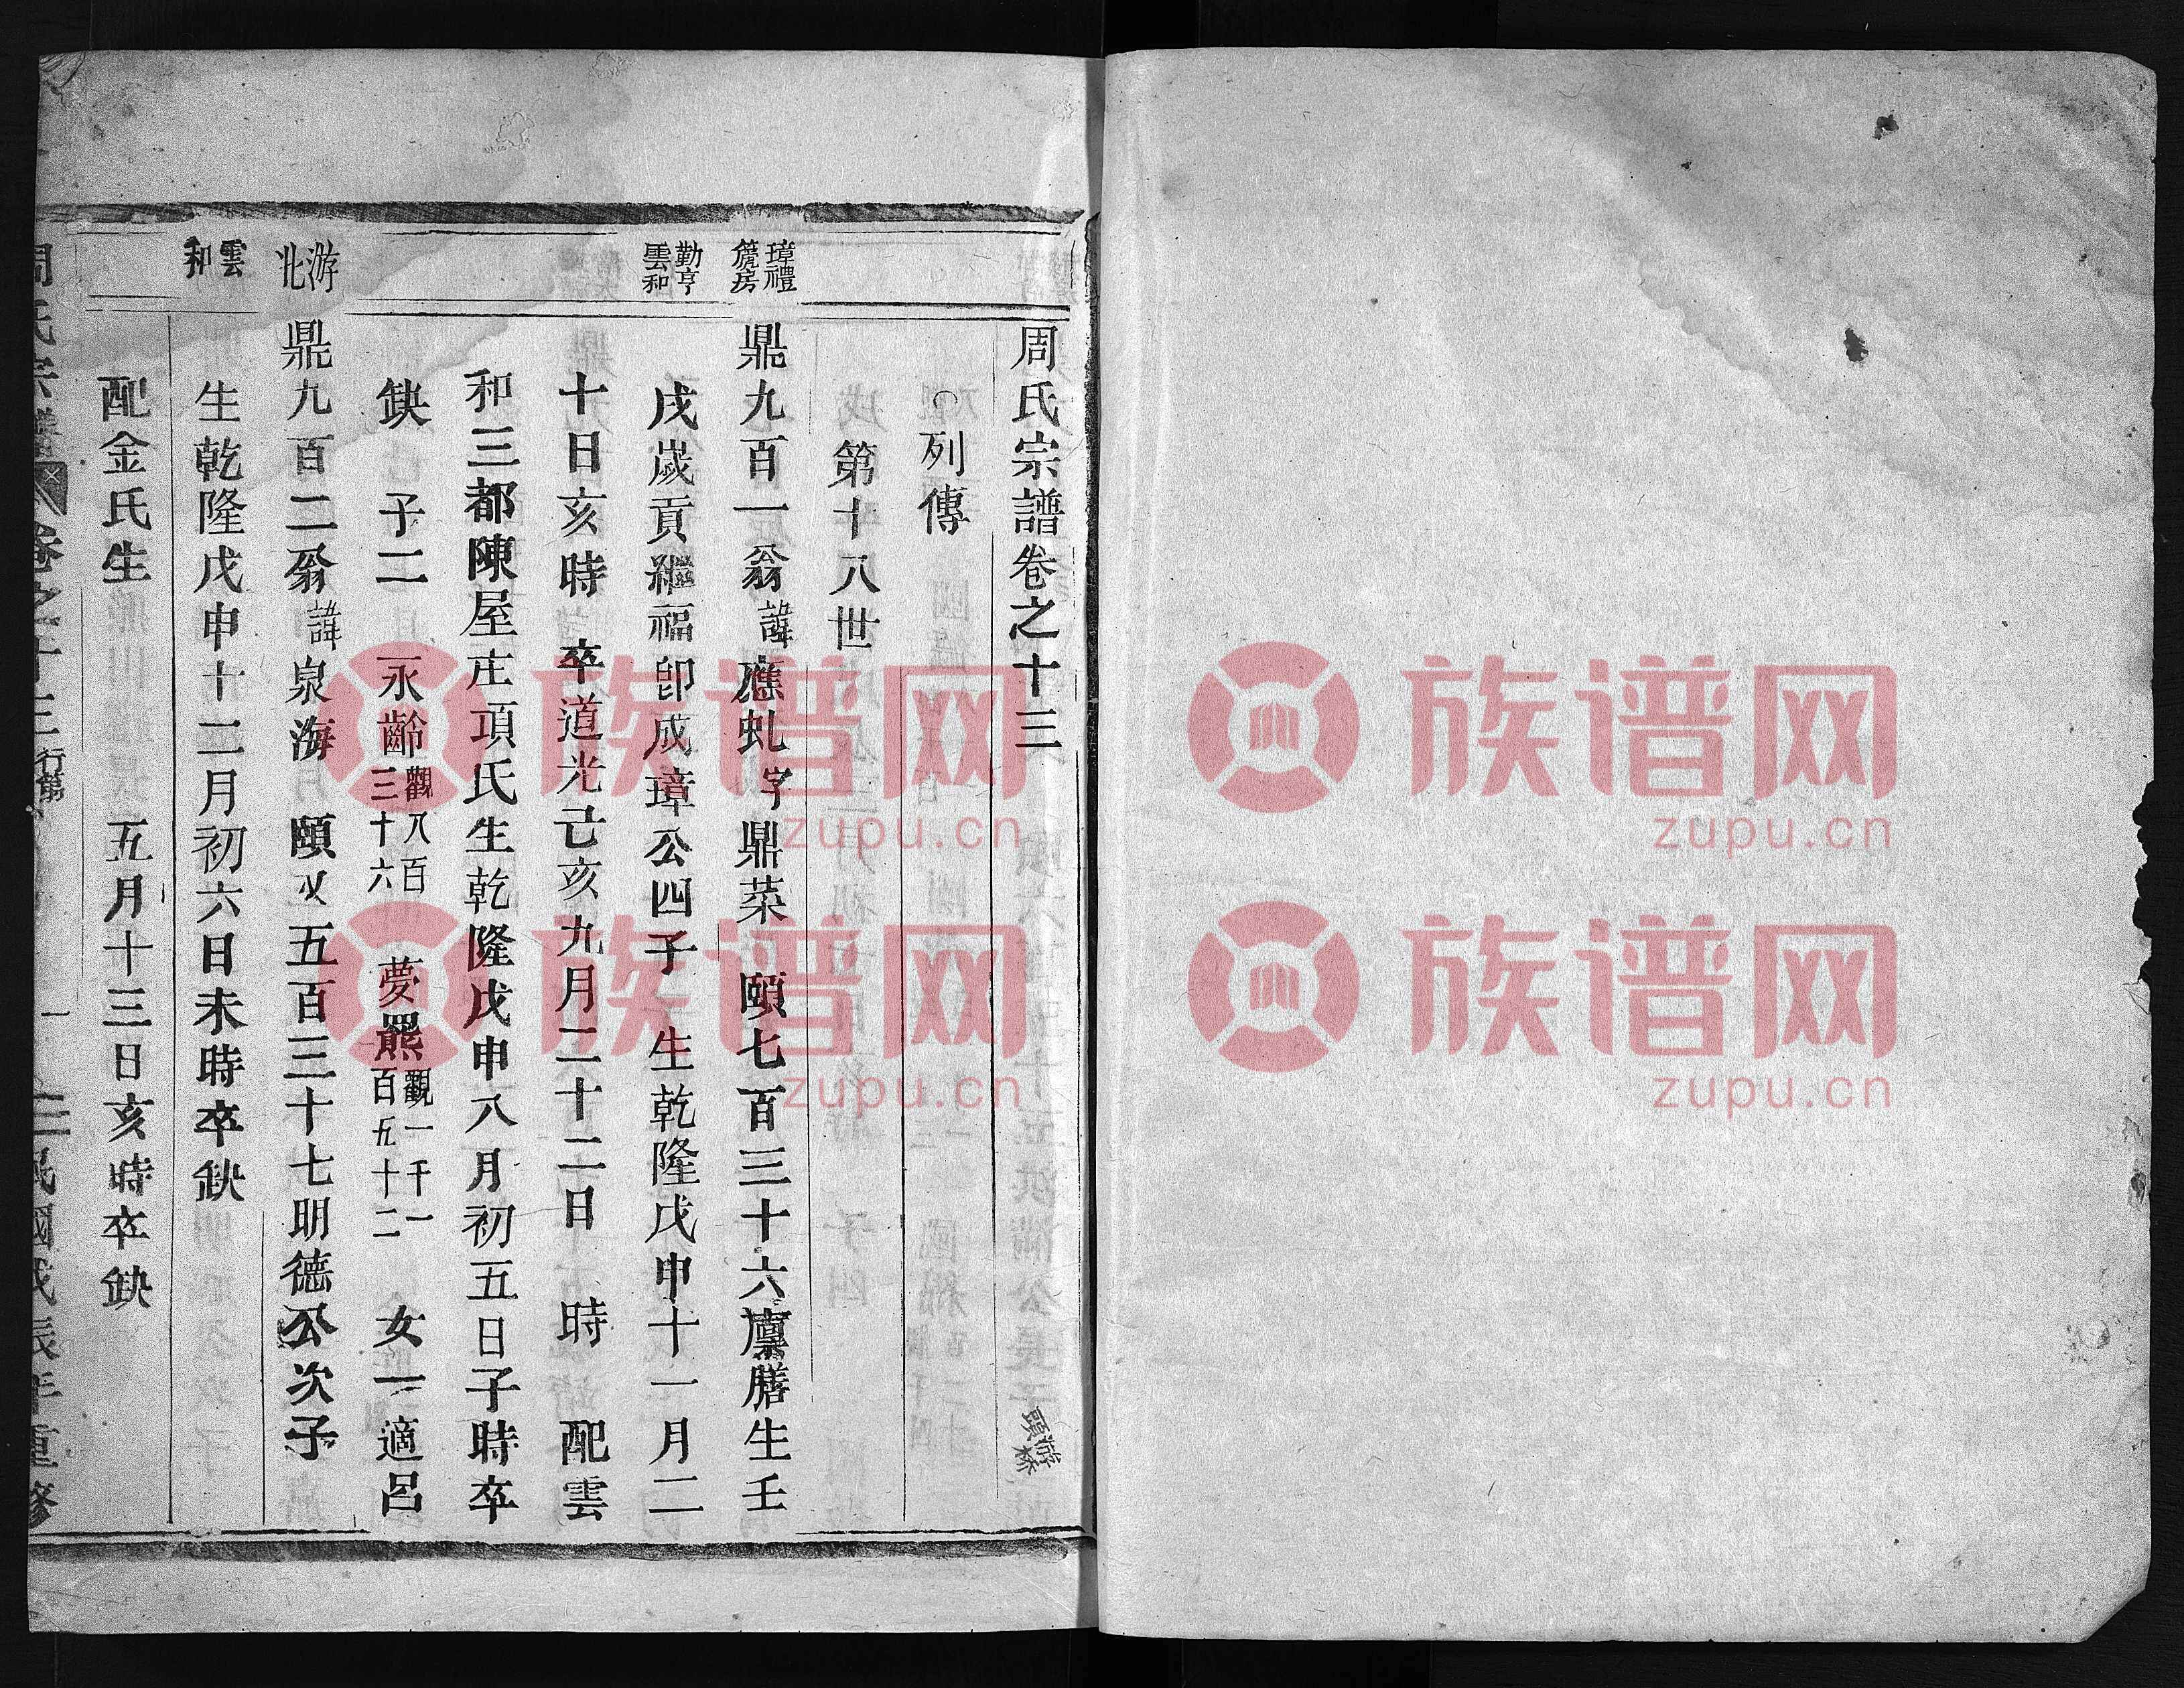 周氏宗譜卷之十三
游橋頭
列傳
第十八世
璋禮
房
鼎九百一翁諱應虬字鼎菜 頤七百三十六廩膳生壬
勤亨
雲和
戌歲貢繼福郎成璋公四子生乾隆戊申十一月二
十日亥時 卒道光己亥九月二十二日 時 配雲
和三都陳屋庄項氏生乾隆戊申八月初五日子時卒
缺 子二 永齡觀八百三十六 夢羆觀一千一百五十二 女一適呂
游北
鼎九百二翁諱泉海 頤又五百三十七明德公次子
雲和
生乾隆戊申十二月初六日未時卒缺
配金氏生 五月十三日亥時卒缺
周氏宗譜 卷之十三 行第 一 民國戊辰年重修
族谱网
zupu.cn
族谱网
zupu.cn
族谱网
zupu.cn
族谱网
zupu.cn